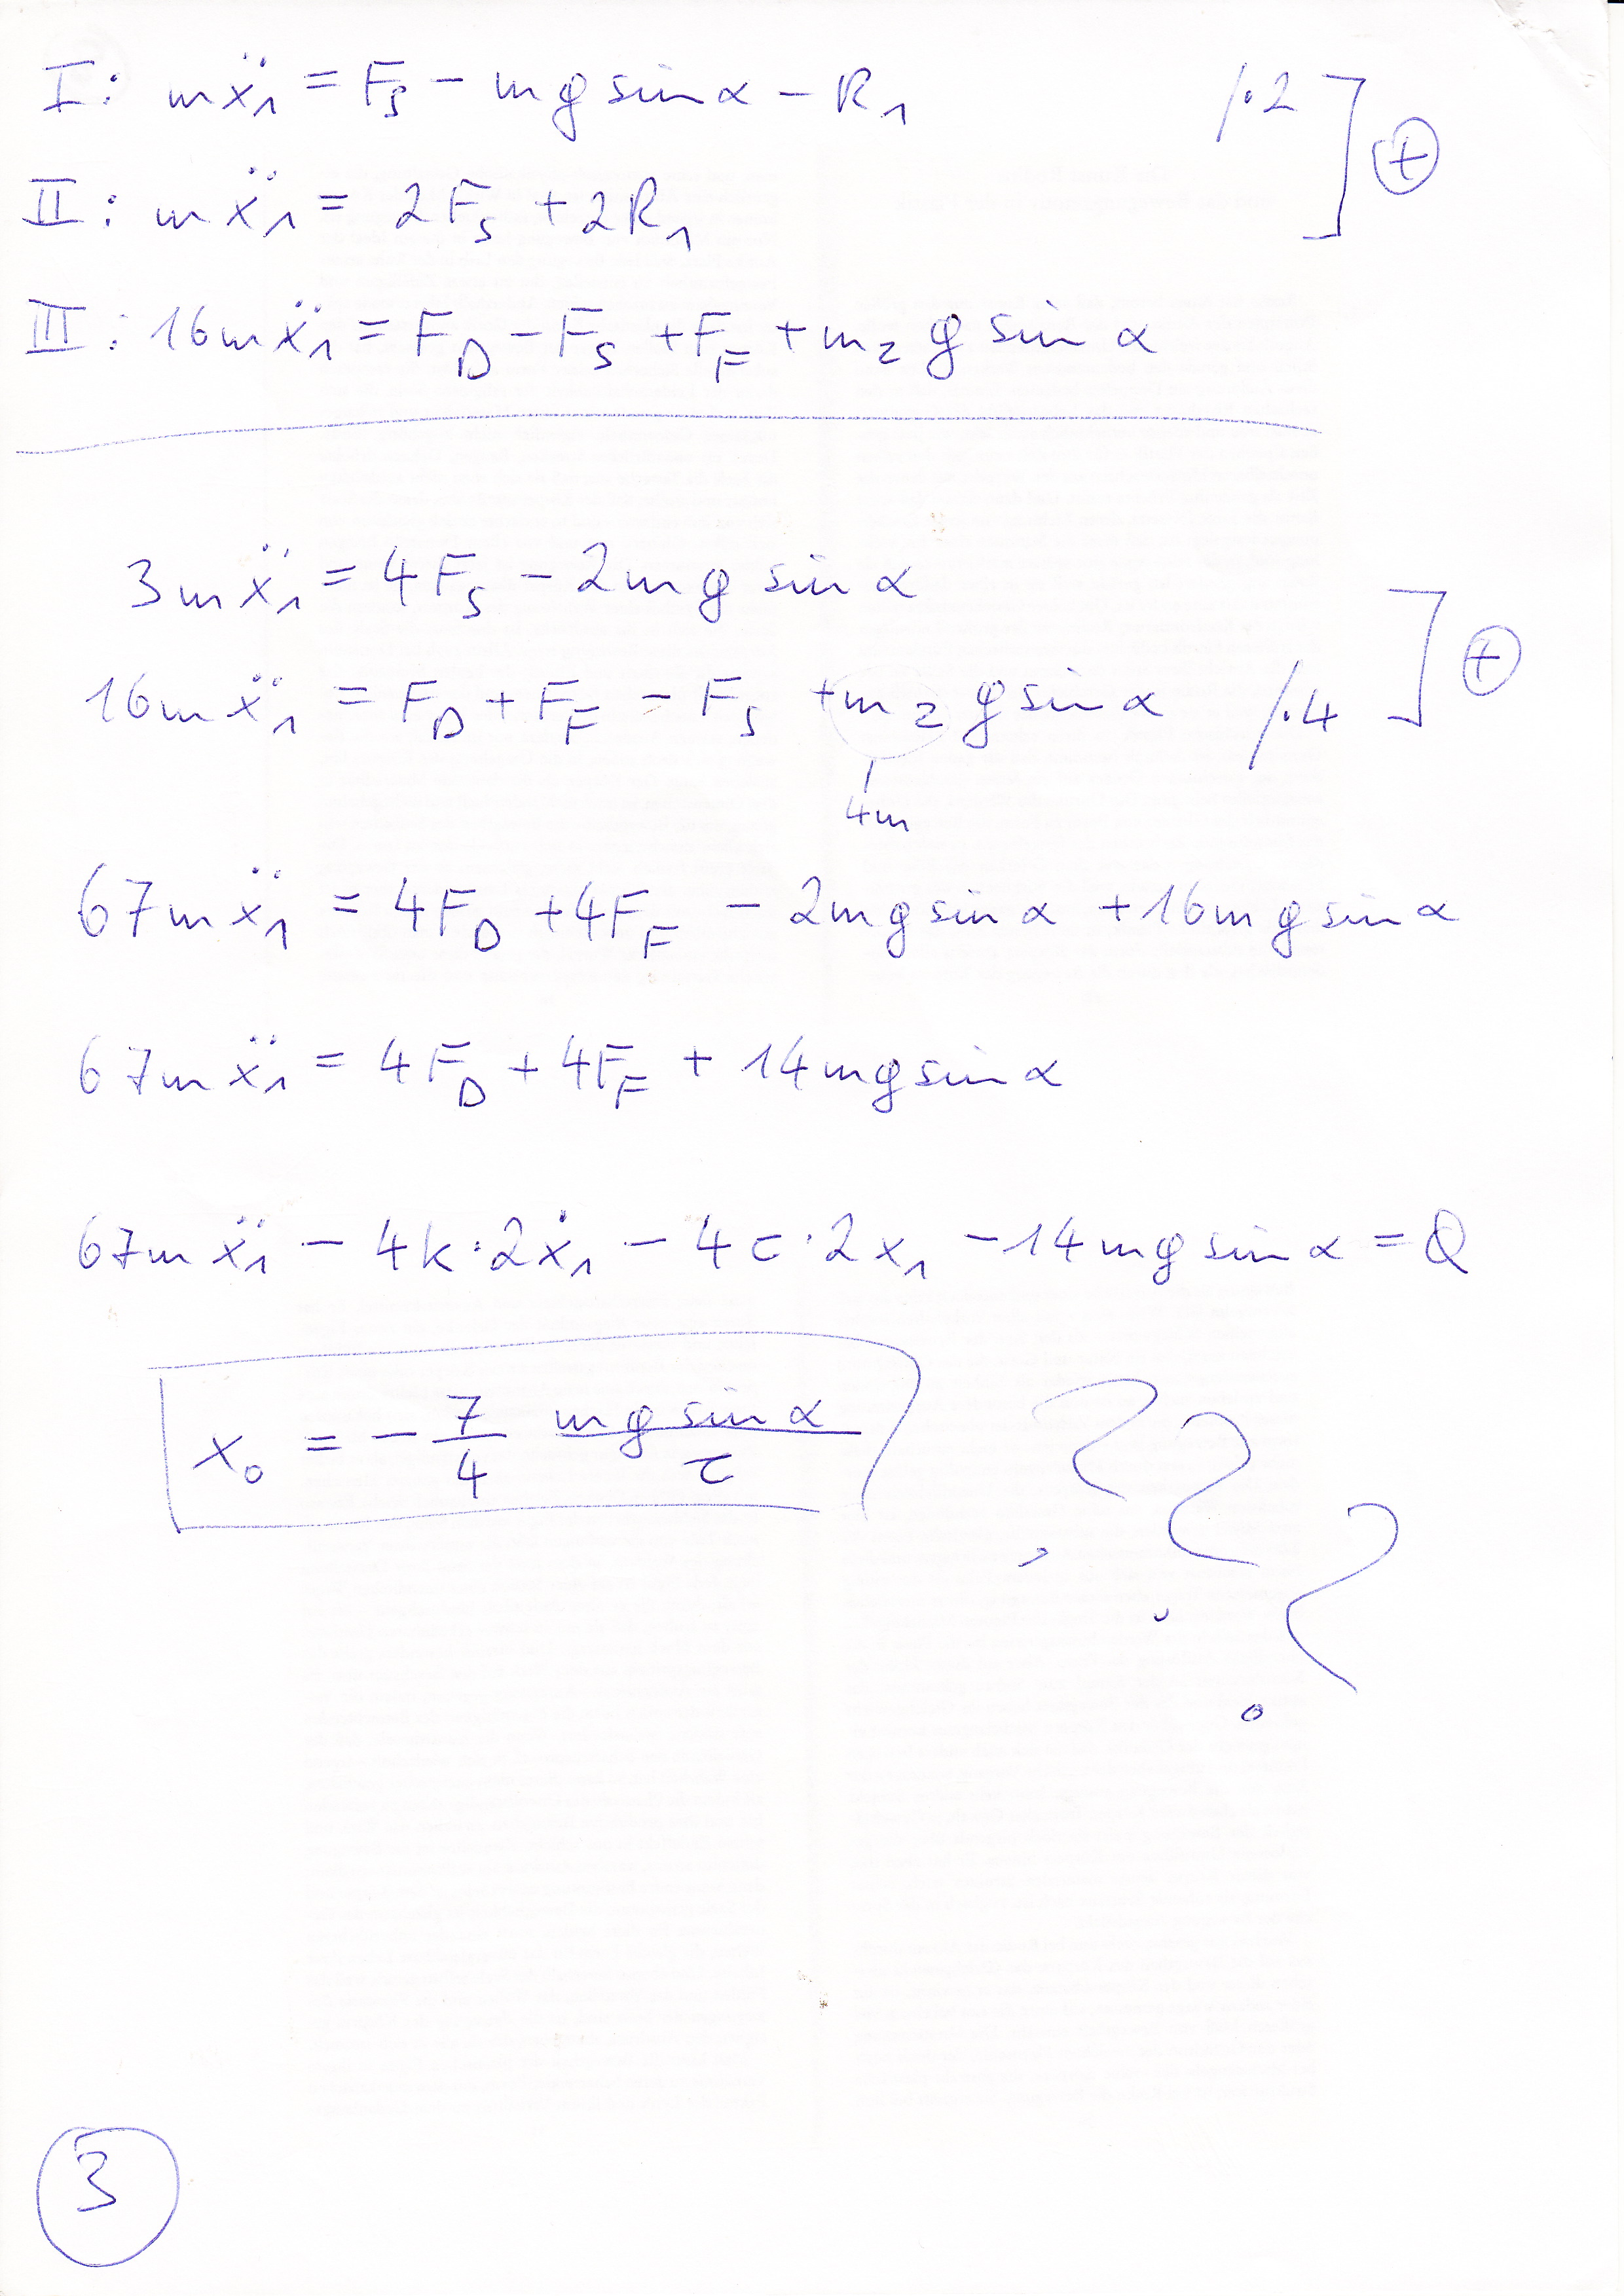 I: mẍ₁ = F_S − mg sin α − R₁ /·2 ⊕
II: mẍ₁ = 2F_S + 2R₁
III: 16mẍ₁ = F_D − F_S + F_F + m₂ g sin α
3mẍ₁ = 4F_S − 2mg sin α ⊕
16mẍ₁ = F_D + F_F − F_S + m₂ g sin α /·4
4m
67mẍ₁ = 4F_D + 4F_F − 2mg sin α + 16mg sin α
67mẍ₁ = 4F_D + 4F_F + 14mg sin α
67mẍ₁ − 4k·2ẋ₁ − 4c·2x₁ − 14mg sin α = 0
x₀ = − 7/4 mg sin α / c ???
3